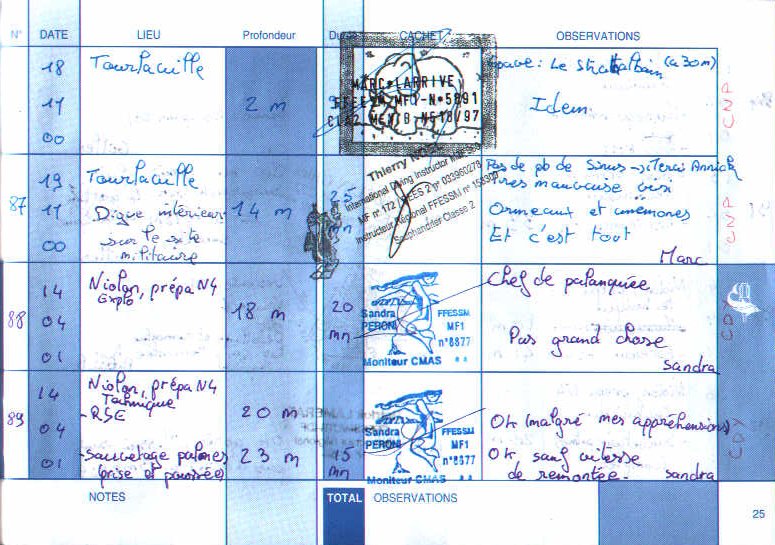 N° DATE LIEU Profondeur CACHET OBSERVATIONS
18 11 00
Tourlaville
2 m
MARC LARRIVE
FFESSM-MF1-N°5891
Le
(à 30m)
Idem
CNP
87
19 11 00
Tourlaville
Digue intérieur
sur le site
militaire
14 m
25
mn
Thierry
International Diving Instructor
MF n° 172
Instructeur Régional FFESSM n°
Scaphandrier Classe 2
Pas de pb de Sinus → Merci Annick
Très mauvaise visi
Ormeaux et anémones
Et c'est tout
Marc
CNP
88
14 04 01
Niolon, prépa N4
Explo
18 m
20
mn
Sandra
PERONI
FFESSM
MF1
n°8877
Moniteur CMAS **
Chef de palanquée
Pas grand chose
Sandra
CDY
89
14 04 01
Niolon, prépa N4
Technique
- RSE
- sauvetage palmes
(prise et poussée)
20 m
23 m
15
mn
Sandra
PERONI
FFESSM
MF1
n°8877
Moniteur CMAS **
OK (malgré mes appréhensions)
OK, sauf vitesse
de remontée. Sandra
CDY
NOTES TOTAL OBSERVATIONS
25